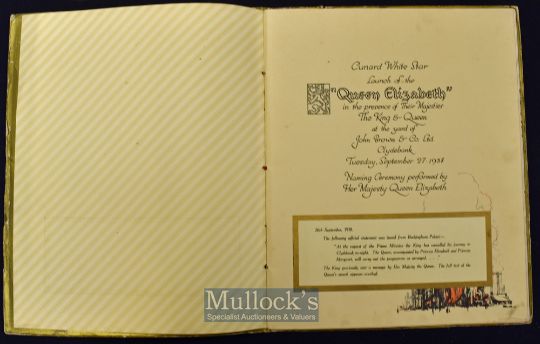 Cunard White Star
Launch of the
"Queen Elizabeth"
in the presence of Their Majesties
The King & Queen
at the yard of
John Brown & Co. Ltd.
Clydebank
Tuesday, September 27 1938
Naming Ceremony performed by
Her Majesty Queen Elizabeth
26th September, 1938.
The following official statement was issued from Buckingham Palace:—
"At the request of the Prime Minister the King has cancelled his journey to
Clydebank to-night. The Queen, accompanied by Princess Elizabeth and Princess
Margaret, will carry out the programme as arranged.
The King
a message by Her Majesty the Queen. The full text of the
Queen's
Mullock's
Specialist Auctioneers & Valuers